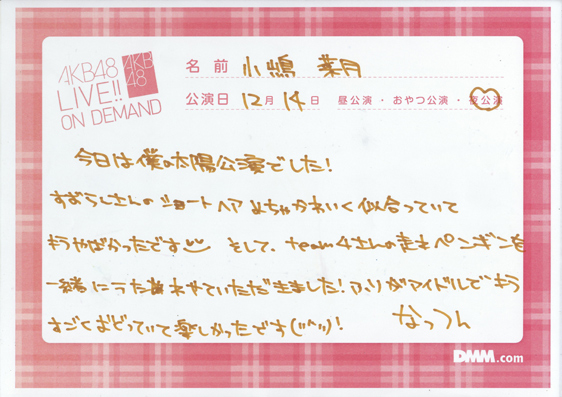 AKB48
LIVE!!
ON DEMAND
AKB
48
名前 小嶋 菜月
公演日 12月 14日 昼公演・おやつ公演・夜公演
今日は僕の太陽公演でした!
すずらんさんのショートヘア めちゃかわいく似合っていて
もうやばかったです そして、team4さんの走れペンギンを
一緒にうたわせていただきました! ふりがアイドルで もう
すごくおどっていて楽しかったです(^^)!
なっつん
DMM.com